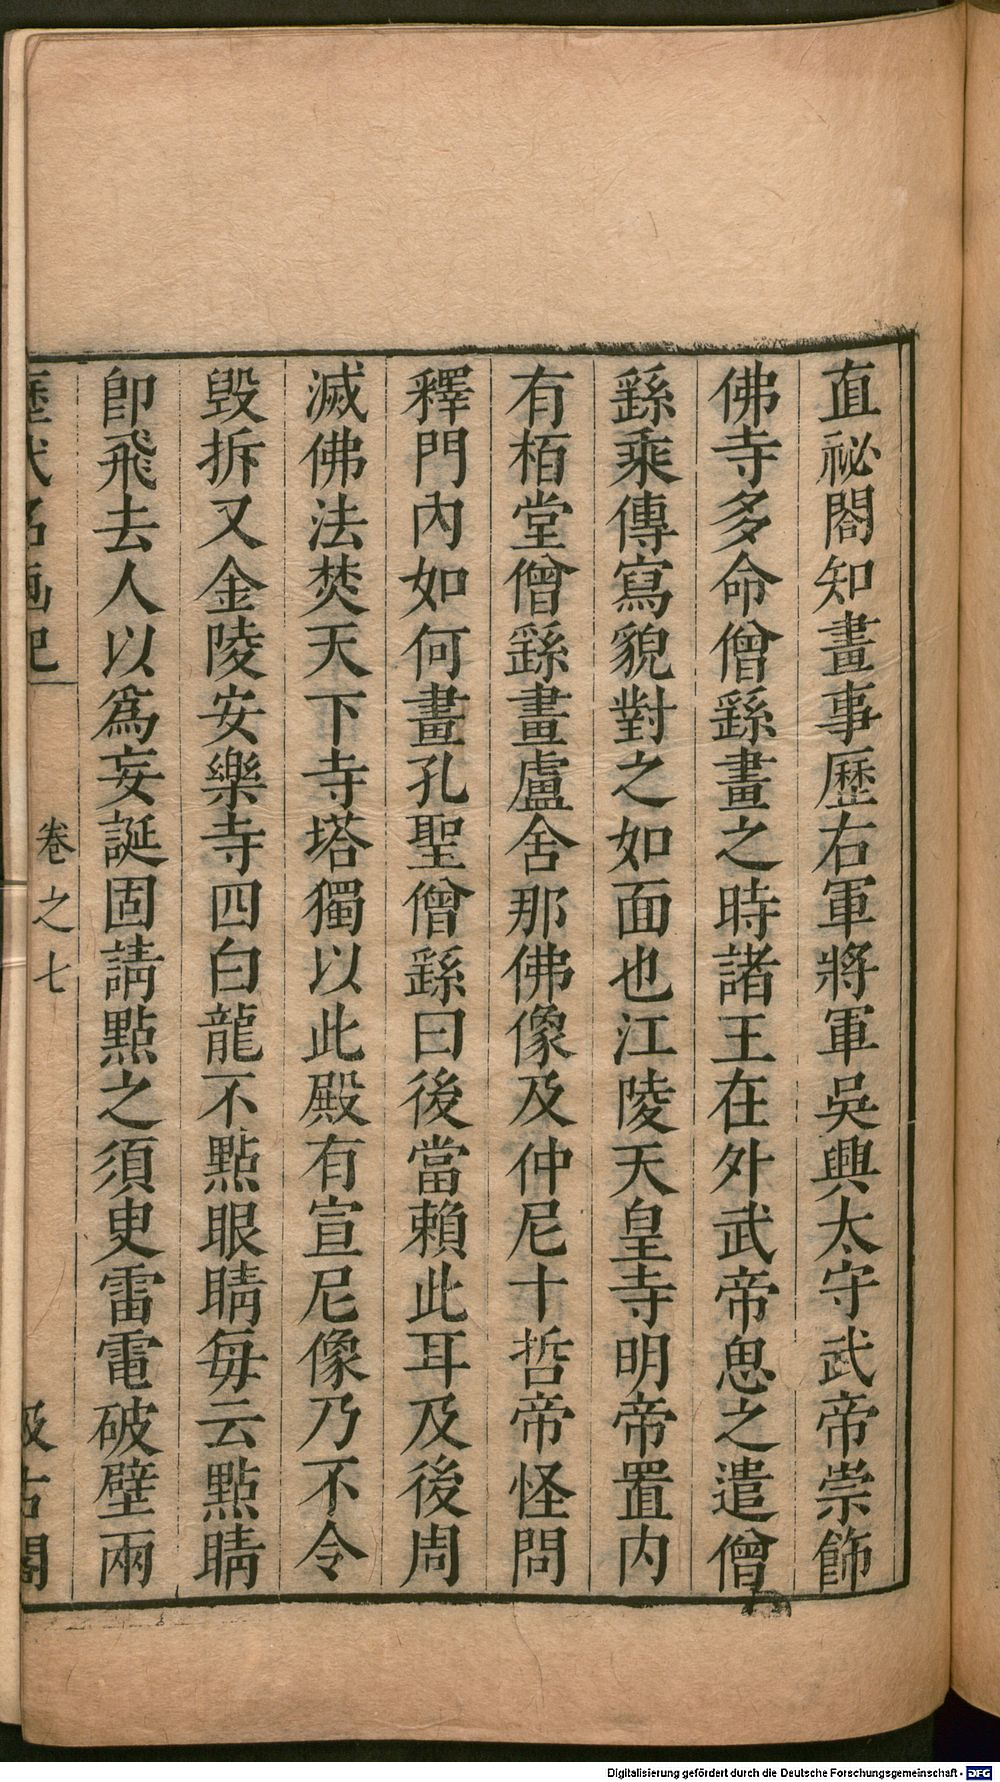 直祕閣知畫事歷右軍將軍吳興太守武帝崇飾
佛寺多命僧繇畫之時諸王在外武帝思之遣僧
繇乘傳寫貌對之如面也江陵天皇寺明帝置内
有栢堂僧繇畫盧舍那佛像及仲尼十哲帝怪問
釋門內如何畫孔聖僧繇曰後當賴此耳及後周
滅佛法焚天下寺塔獨以此殿有宣尼像乃不令
毀拆又金陵安樂寺四白龍不點眼睛每云點睛
卽飛去人以爲妄誕固請點之須臾雷電破壁兩
歷代名画記
卷之七
汲古閣
Digitalisierung gefördert durch die Deutsche Forschungsgemeinschaft - DFG